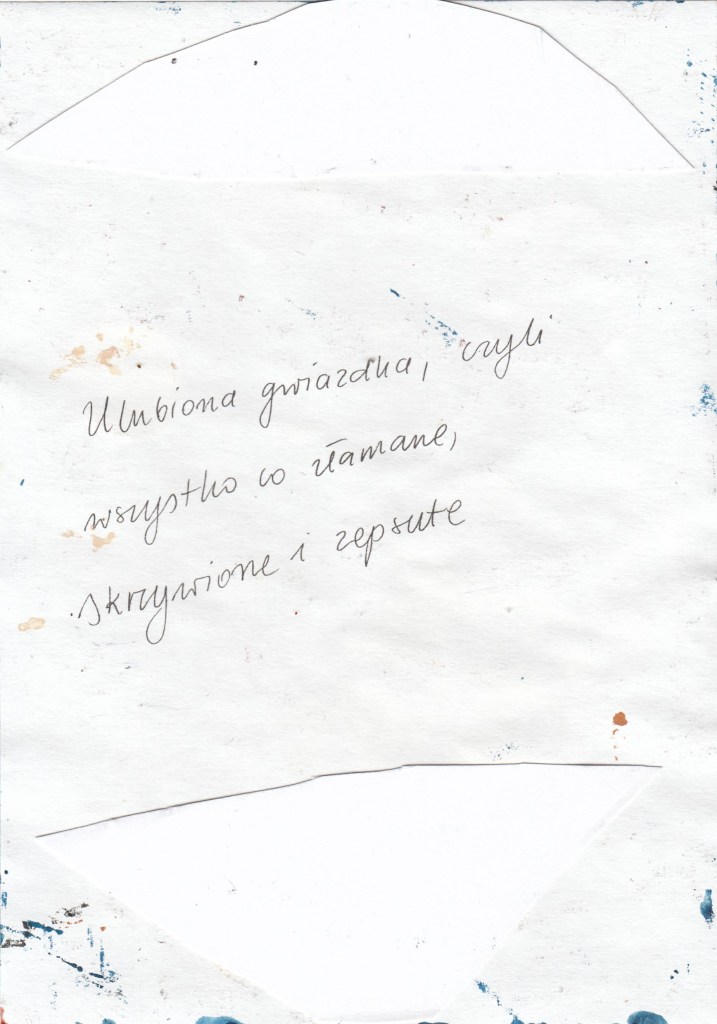 Ulubiona gwiazdka, czyli
wszystko co złamane,
skrzywione i zepsute